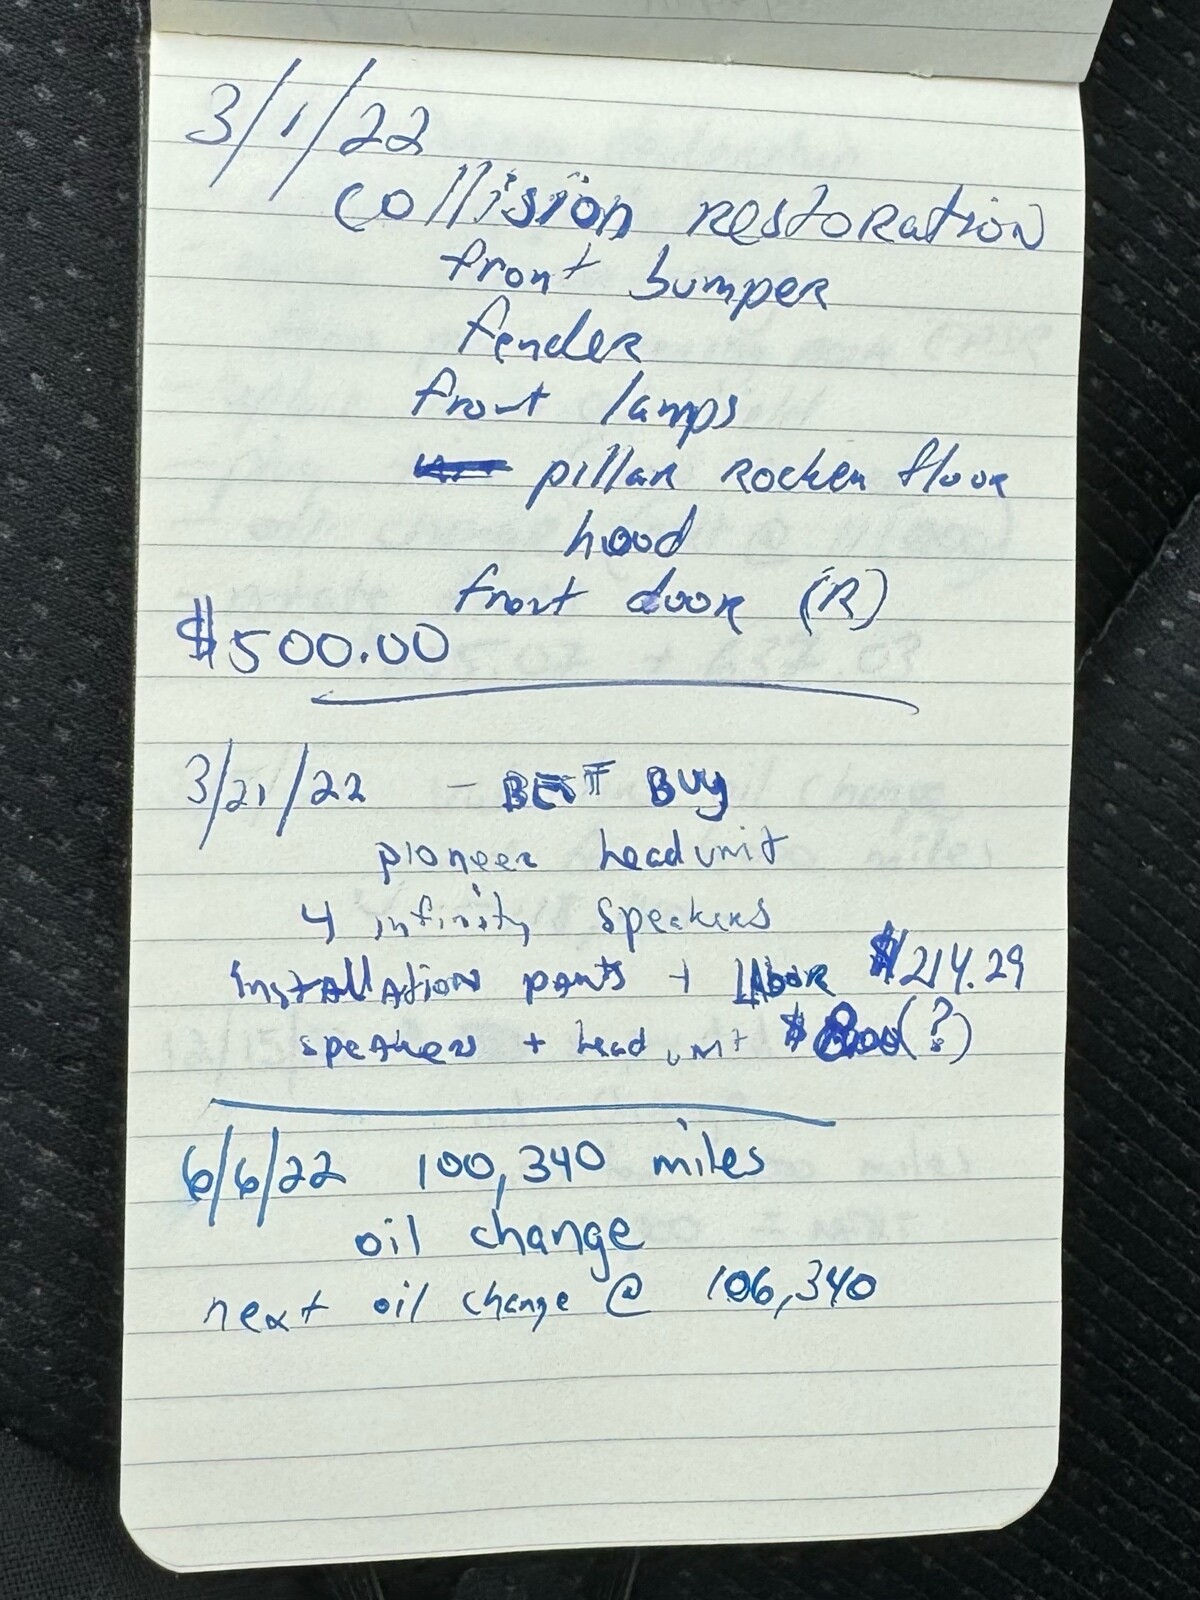 3/1/22
collision restoration
front bumper
fender
front lamps
pillar rocker floor
hood
front door (R)
$500.00
3/21/22 - BEST BUY
pioneer headunit
4 infinity speakers
installation parts + labor $214.29
speakers + head unit $800(?)
6/6/22 100,340 miles
oil change
next oil change @ 106,340